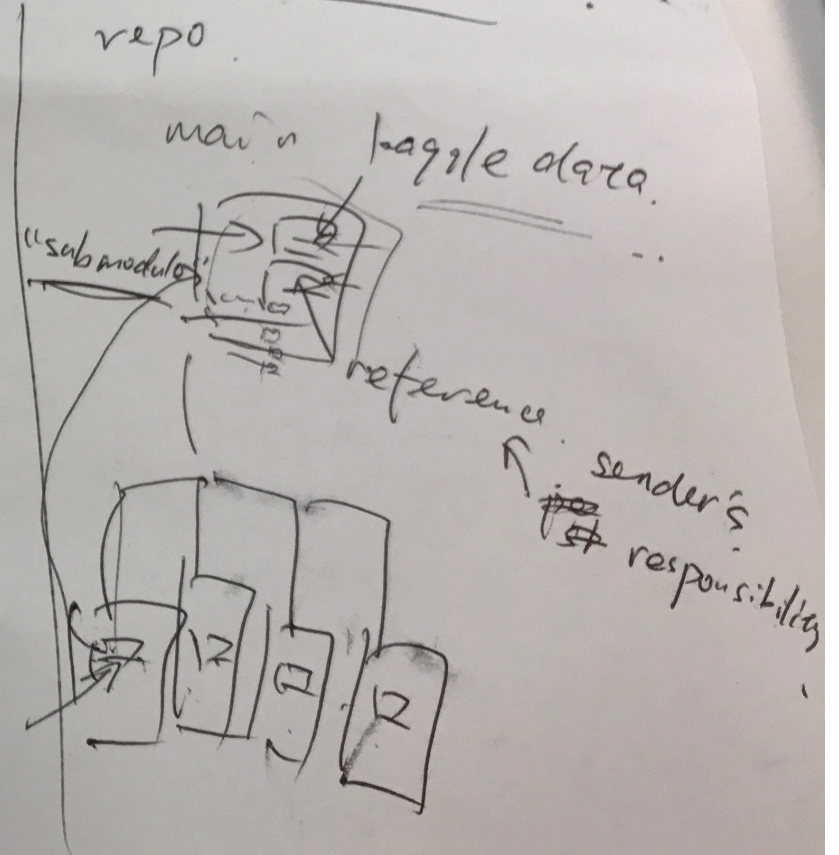 repo.
main kaggle data.
"submodules"
reference.
sender's
responsibility